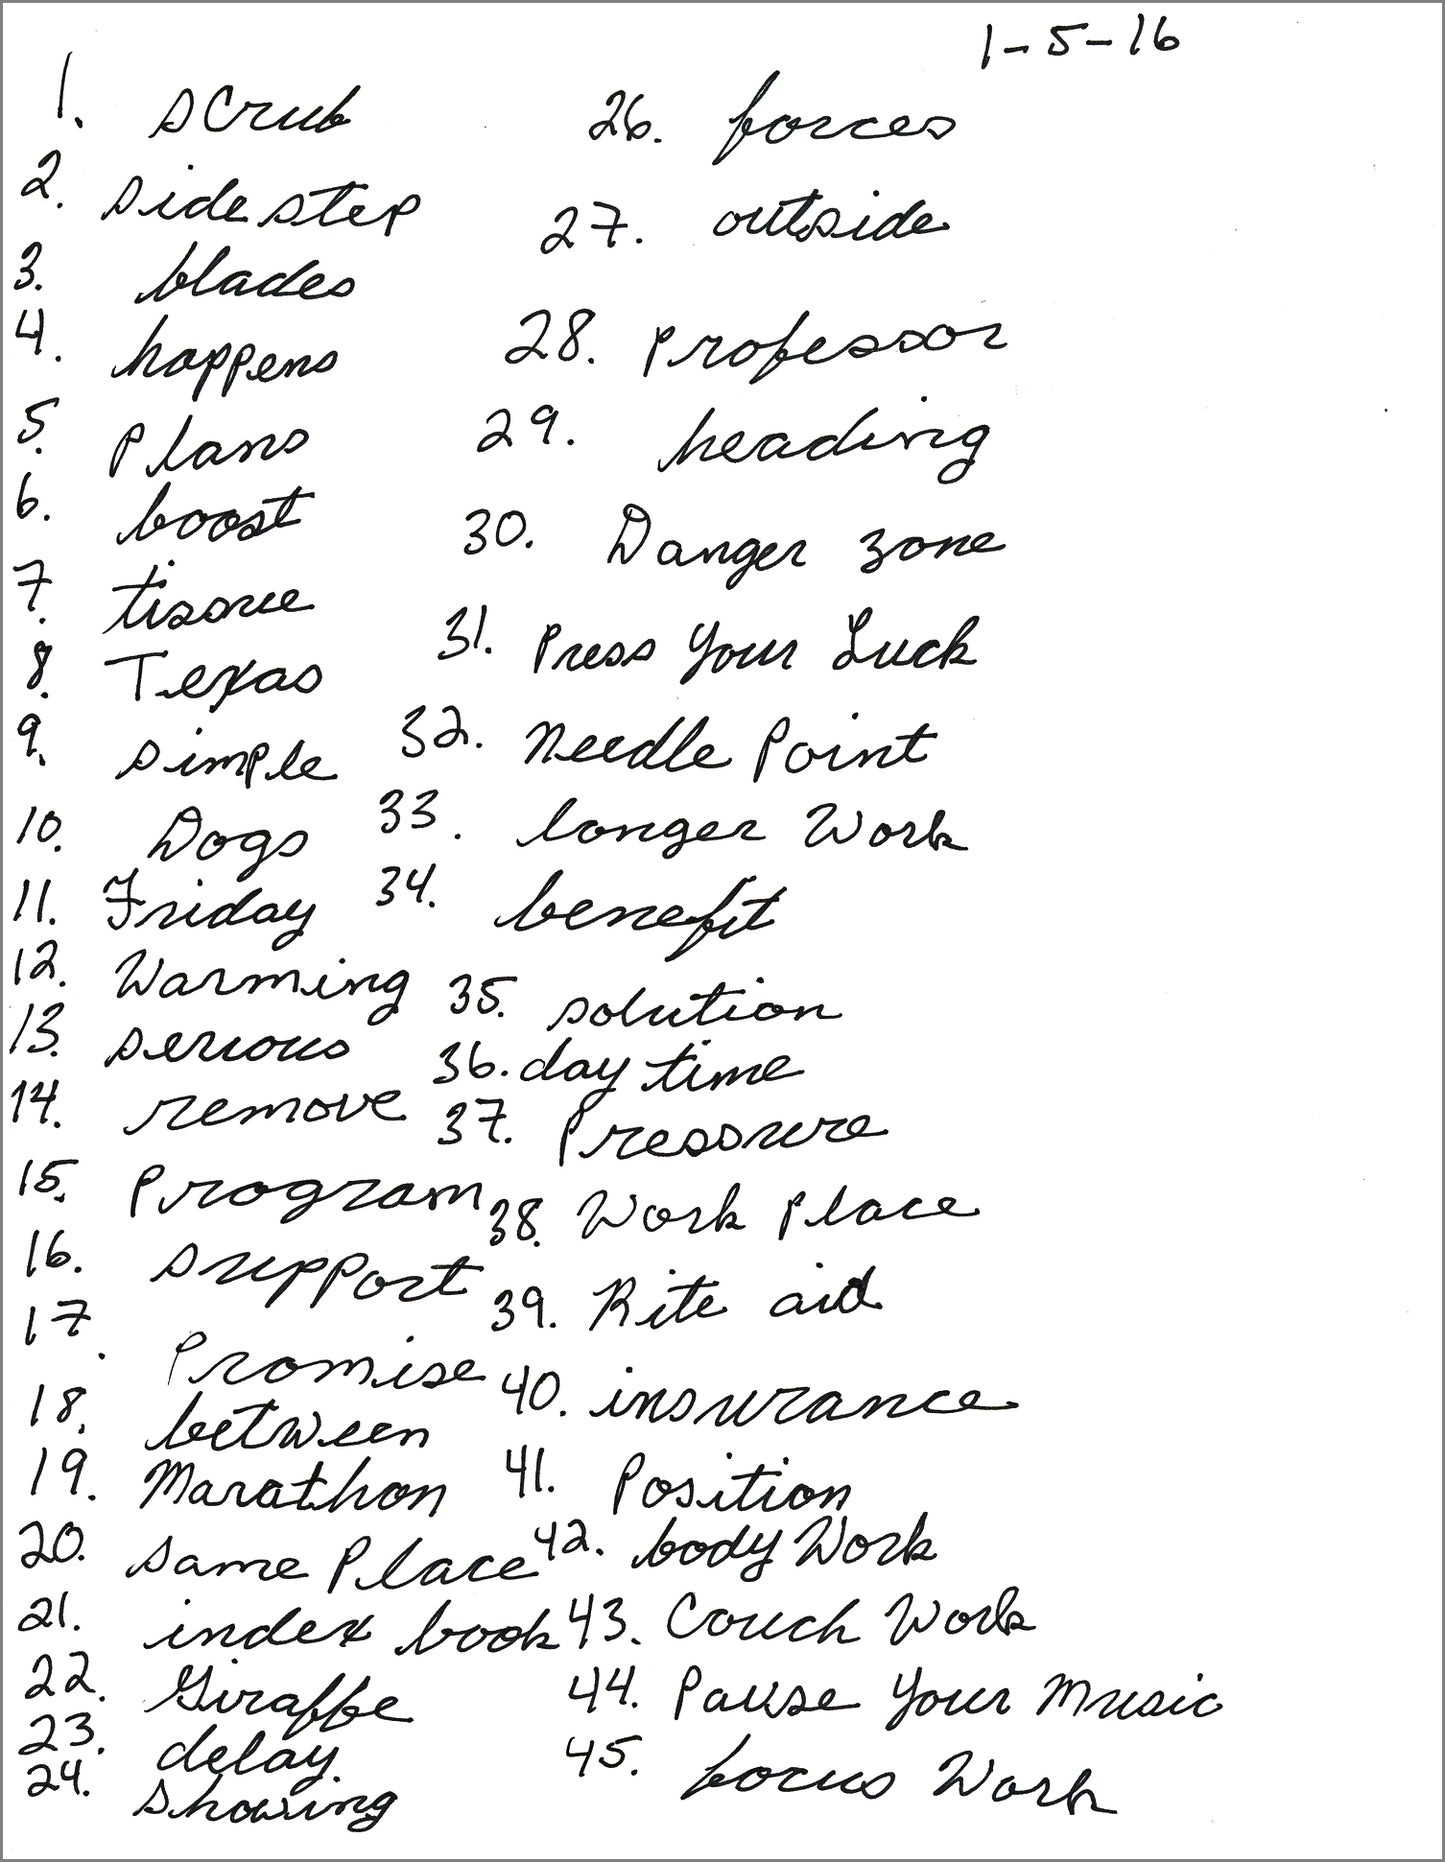 1-5-16
1. scrub
2. side step
3. blades
4. happens
5. Plans
6. boost
7. tissue
8. Texas
9. simple
10. Dogs
11. Friday
12. Warming
13. serious
14. remove
15. Program
16. support
17. Promise
18. between
19. Marathon
20. same Place
21. index book
22. Giraffe
23. delay
24. showing
26. forces
27. outside
28. Professor
29. heading
30. Danger zone
31. Press Your Luck
32. Needle Point
33. longer Work
34. benefit
35. solution
36. day time
37. Pressure
38. Work Place
39. Rite aid
40. insurance
41. Position
42. body Work
43. Couch Work
44. Pause Your Music
45. focus Work